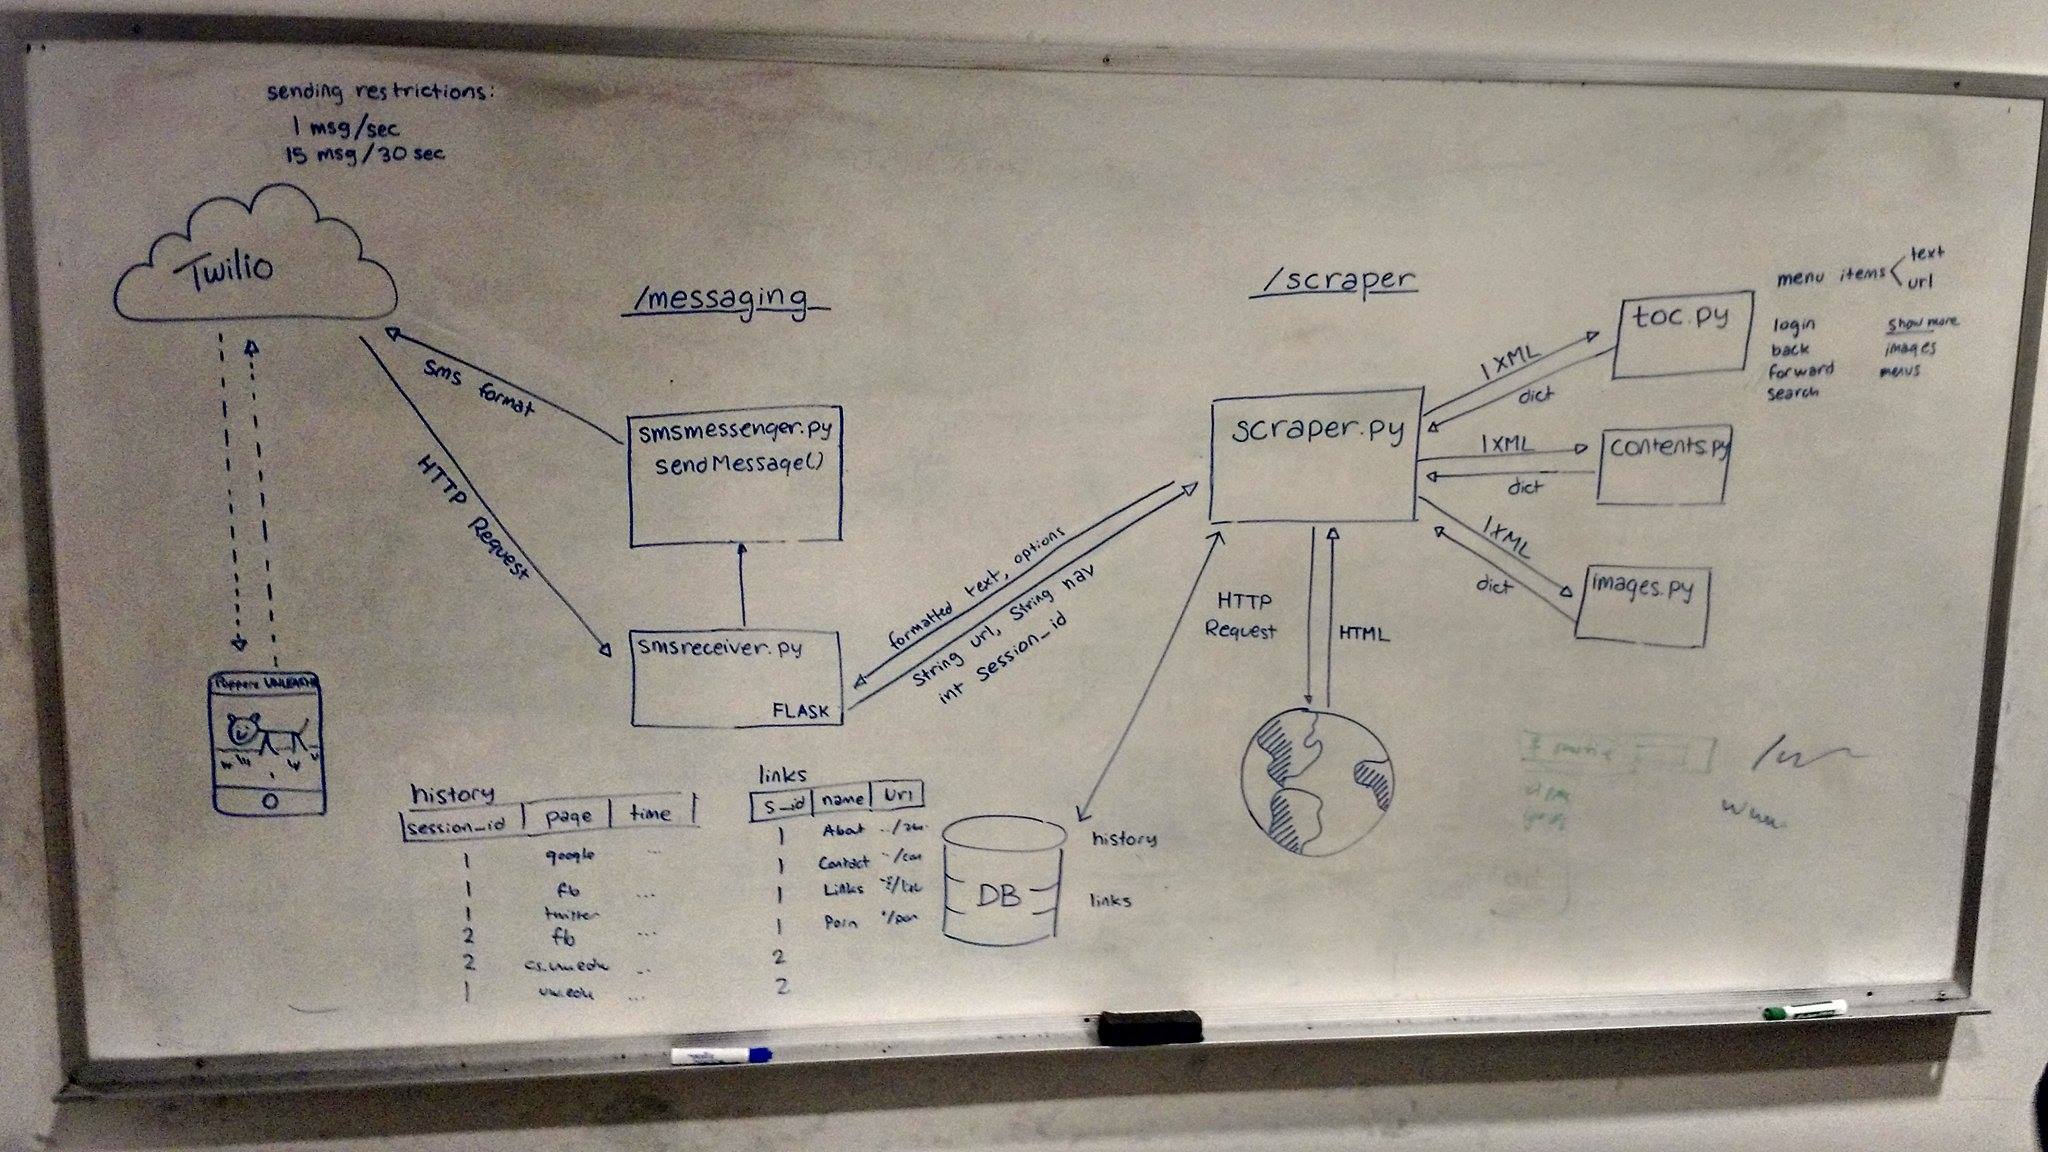 sending restrictions:
1 msg/sec
15 msg/30 sec
Twilio
/messaging
/scraper
menu items
text
url
toc.py
login
back
forward
search
show more
images
menus
sms format
HTTP Request
smsmessenger.py
sendMessage()
scraper.py
1 XML
dict
contents.py
1 XML
dict
images.py
1 XML
dict
formatted text, options
String url, String nav
int session_id
HTTP
Request
HTML
smsreceiver.py
FLASK
UNLEASHED
history
session_id page time
1 google ...
1 fb ...
1 twitter
2 fb ...
2 cs.uw.edu ...
1 uw.edu ...
links
s_id name url
1 About
1 Contact
1 Links
1 Porn
2
2
DB
history
links